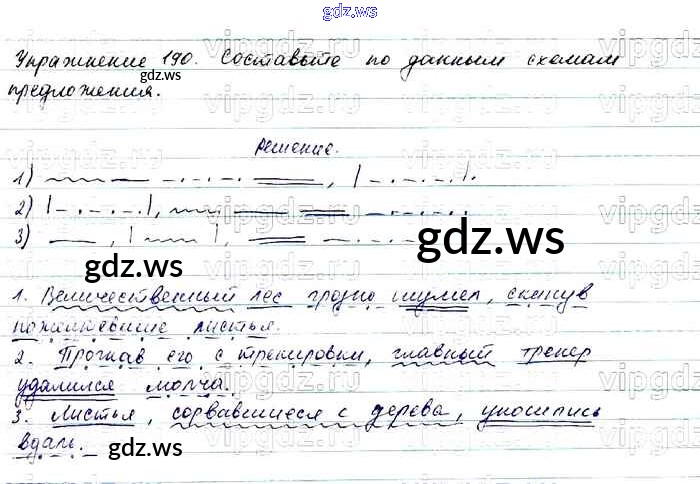 gdz.ws
Упражнение 190. Составьте по данным схемам
gdz.ws
предложения.
Решение.
1) , | |.
2) | |,
3) , | |,
gdz.ws
gdz.ws
1. Величественный лес грозно шумел, скинув
пожелтевшие листья.
2. Прогнав его с тренировки, главный тренер
удалился молча.
3. Листья, сорвавшиеся с дерева, уносились
вдаль.
gdz.ws
gdz.ws